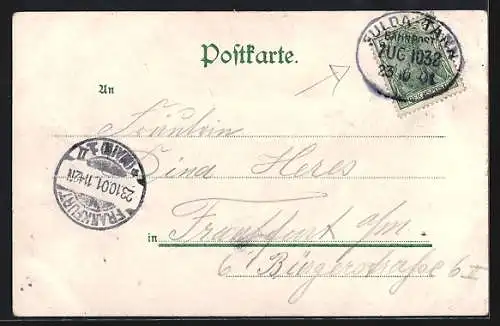 Postkarte.
FULDA-TANN
BAHNPOST
ZUG 1032
23 10 01
An
Fräulein
Dina Heres
in Frankfurt a/m
Bürgerstraße 6 II
FRANKFURT
23.10.01. 11-12N.
(MAIN)